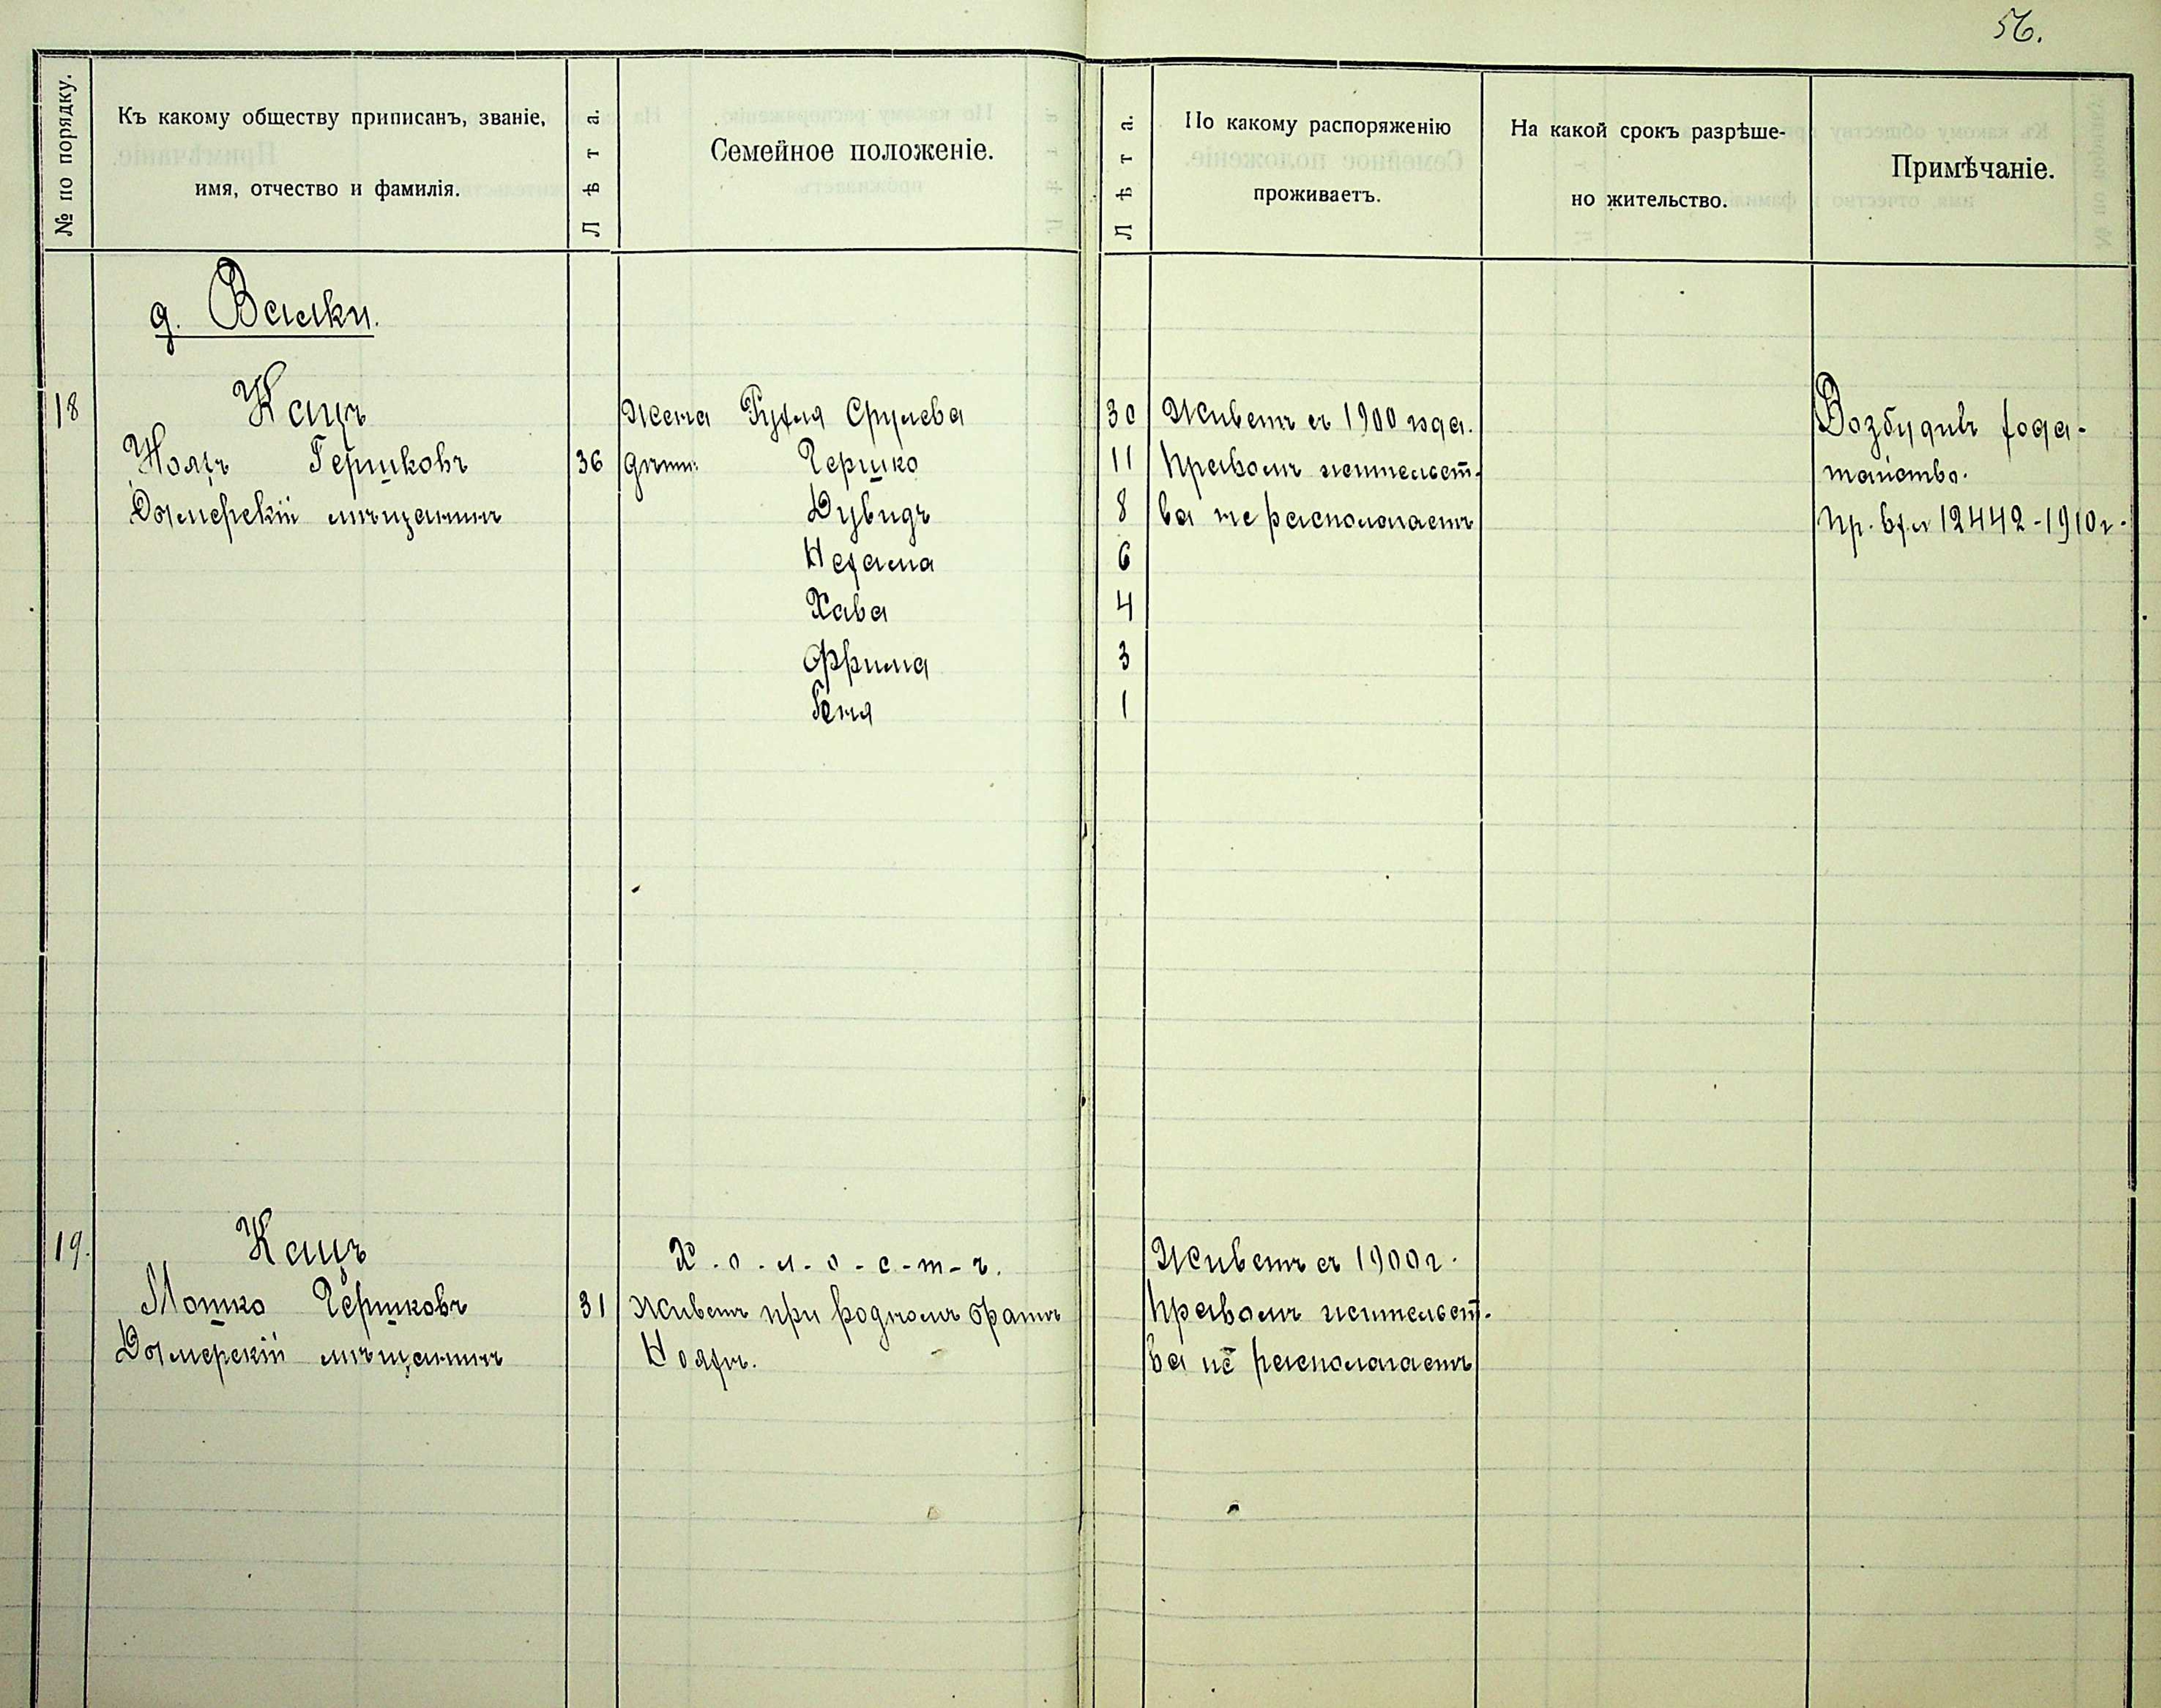 56.
№ по порядку.
Къ какому обществу приписанъ, званіе,
имя, отчество и фамилія.
Лѣта.
Семейное положеніе.
Лѣта.
По какому распоряженію
проживаетъ.
На какой срокъ разрѣше-
но жительство.
Примѣчаніе.
д. Валки.
18 Кацъ Жена Рухля Срулева 30 Живетъ съ 1900 года. Возбудилъ хода-
Нояхъ Гершковъ 36 дѣти: Гершко 11 Правомъ жительст- тайство.
мѣщанинъ Дувидъ 8 ва не располагаетъ Пр. вх. № 12442-1910 г.
Нехама 6
Хава 4
Фрима 3
Геня 1
19. Кацъ Х-о-л-о-с-т-ъ. Живетъ съ 1900 г.
Мошко Гершковъ 31 Живетъ при родномъ братѣ Правомъ жительст-
мѣщанинъ Нояхѣ. ва не располагаетъ